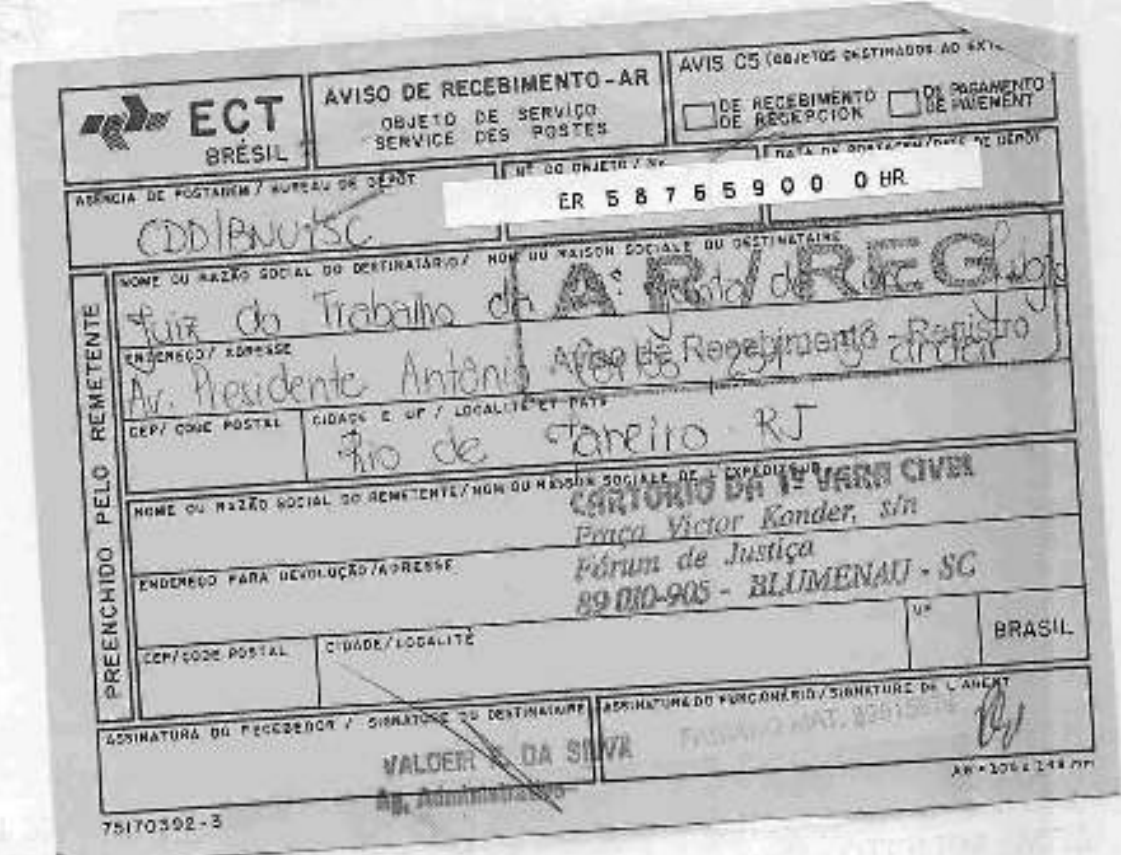 ECT
BRÉSIL
AVISO DE RECEBIMENTO - AR
OBJETO DE SERVIÇO
SERVICE DES POSTES
AVIS C5 (OBJETOS DESTINADOS AO
DE RECEBIMENTO
DE RECEPCION
DE PAGAMENTO
DE PAIEMENT
AGÊNCIA DE POSTAGEM / BUREAU DE DÉPÔT
CDD/BNU/SC
Nº DO OBJETO /
ER 5 8 7 6 5 9 0 0 0 HR
DATA DE POSTAGEM / DATE DE DÉPÔT
PREENCHIDO PELO REMETENTE
NOME OU RAZÃO SOCIAL DO DESTINATÁRIO / NOM OU RAISON SOCIALE DU DESTINATAIRE
Juiz do Trabalho da Junta de
AR / REG
Aviso de Recebimento - Registro
ENDEREÇO / ADRESSE
Av. Presidente Antônio andar
CEP / CODE POSTAL
CIDADE E UF / LOCALITÉ ET PAYS
Rio de Janeiro RJ
NOME OU RAZÃO SOCIAL DO REMETENTE / NOM OU RAISON SOCIALE DE L'EXPÉDITEUR
CARTÓRIO DA 1ª VARA CIVEL
Praça Victor Konder, s/n
Fórum de Justiça
89 010-905 - BLUMENAU - SC
ENDEREÇO PARA DEVOLUÇÃO / ADRESSE
CEP / CODE POSTAL
CIDADE / LOCALITÉ
UF
BRASIL
ASSINATURA DO RECEBEDOR / SIGNATURE DU DESTINATAIRE
VALDEIR DA SILVA
Ag. Administrativo
ASSINATURA DO FUNCIONÁRIO / SIGNATURE DE L'AGENT
MAT.
75170392-3